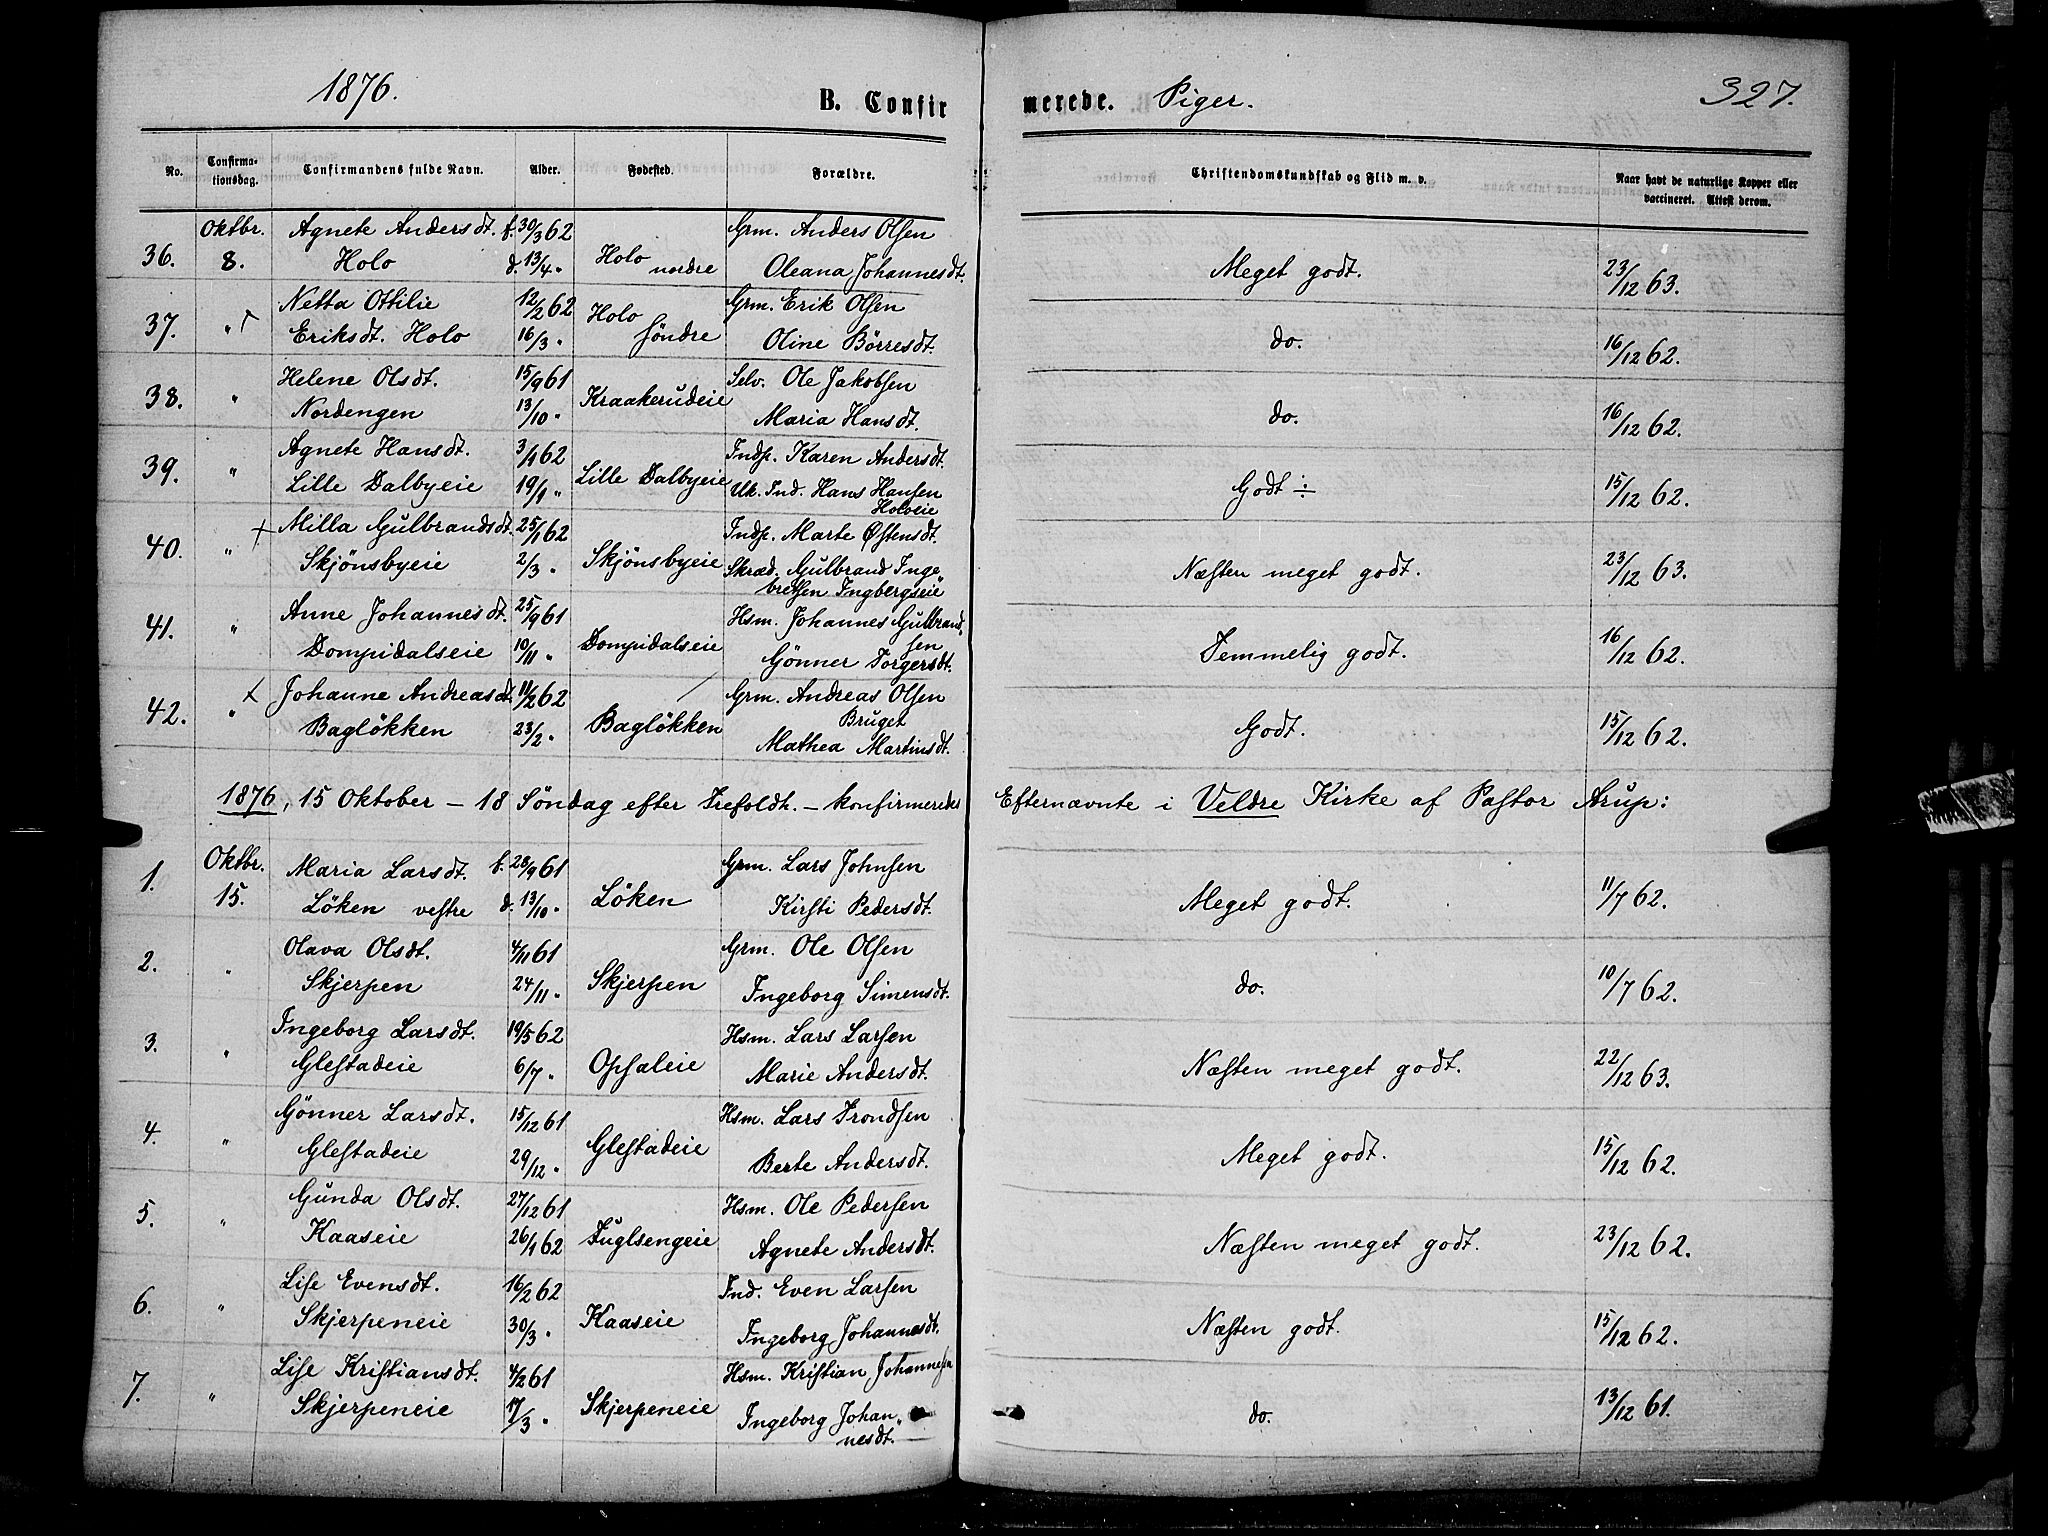 1876.
B. Confirmerede. Piger.
327.
No. | Confirmationsdag. | Confirmandens fulde Navn. | Alder. | Fødested. | Forældre. | Christendomskundskab og Flid m. v. | Naar havt de naturlige Kopper eller vaccineret. Attest derom.
Oktbr. Agnete Andersdt. f. 30/3 62 Grm. Anders Olsen
36. 8. Holo d. 13/4 " Holo nordre Oleana Johannesdt. Meget godt. 23/12 63.
Netta Ottilie 12/2 62 Holo Grm. Erik Olsen
37. " Eriksdt. Holo 16/3 " söndre Oline Börresdt. do. 16/12 62.
Helene Olsdt. 15/9 61 Selv. Ole Jakobsen
38. " Nordengen 13/10 " Kraakerudeie Maria Hansdt. do. 16/12 62.
Agnete Hansdt. 3/1 62 Indp. Karen Andersdt.
39. " Lille Dalbyeie 19/1 " Lille Dalbyeie Uk. Ind. Hans Hansen Godt ÷ 15/12 62.
Holoeie
+ Milla Gulbrandsdt. 25/1 62 Indp. Marte Østensdt.
40. " Skjönsbyeie 2/3 " Skjönsbyeie Skræd. Gulbrand Inge Næsten meget godt. 23/12 63.
bretsen Ingbergseie
Anne Johannesdt. 25/9 61 Hsm. Johannes Gulbrand-
41. " Dompidalseie 10/11 " Dompidalseie sen Temmelig godt. 16/12 62.
Gönner Torgersdt.
+ Johanne Andreasdt. 11/2 62 Grm. Andreas Olsen
42. " Baglökken 23/2 " Baglökken Bruget Godt. 15/12 62.
Mathea Martinsdt.
1876, 15 Oktober – 18 Söndag efter Trefoldh. – konfirmeredes Efternævnte i Veldre Kirke af Pastor Arup:
Oktbr. Maria Larsdt. f. 28/9 61 Grm. Lars Johnsen
1. 15. Löken vestre d. 13/10 " Löken Kirsti Pedersdt. Meget godt. 11/7 62.
Olava Olsdt. 4/11 61 Grm. Ole Olsen
2. " Skjerpen 24/11 " Skjerpen Ingeborg Simensdt. do. 10/7 62.
Ingeborg Larsdt. 19/5 62 Hsm. Lars Larsen
3. " Glestadeie 6/7 " Opsaleie Marie Andersdt. Næsten meget godt. 22/12 63.
Gönner Larsdt. 15/12 61 Hsm. Lars Trondsen
4. " Glestadeie 29/12 " Glestadeie Berte Andersdt. Meget godt. 15/12 62.
Gunda Olsdt. 27/12 61 Hsm. Ole Pedersen
5. " Kaaseie 26/1 62 Fuglsengeie Agnete Andersdt. Næsten meget godt. 23/12 62.
Lise Evensdt. 16/2 62 Ind. Even Larsen
6. " Skjerpeneie 30/3 " Kaaseie Ingeborg Johannesdt. Næsten godt. 15/12 62.
Lise Kristiansdt. 4/2 61 Hsm. Kristian Johannesen
7. " Skjerpeneie 17/3 " Skjerpeneie Ingeborg Johan- do. 13/12 61.
nesdt.